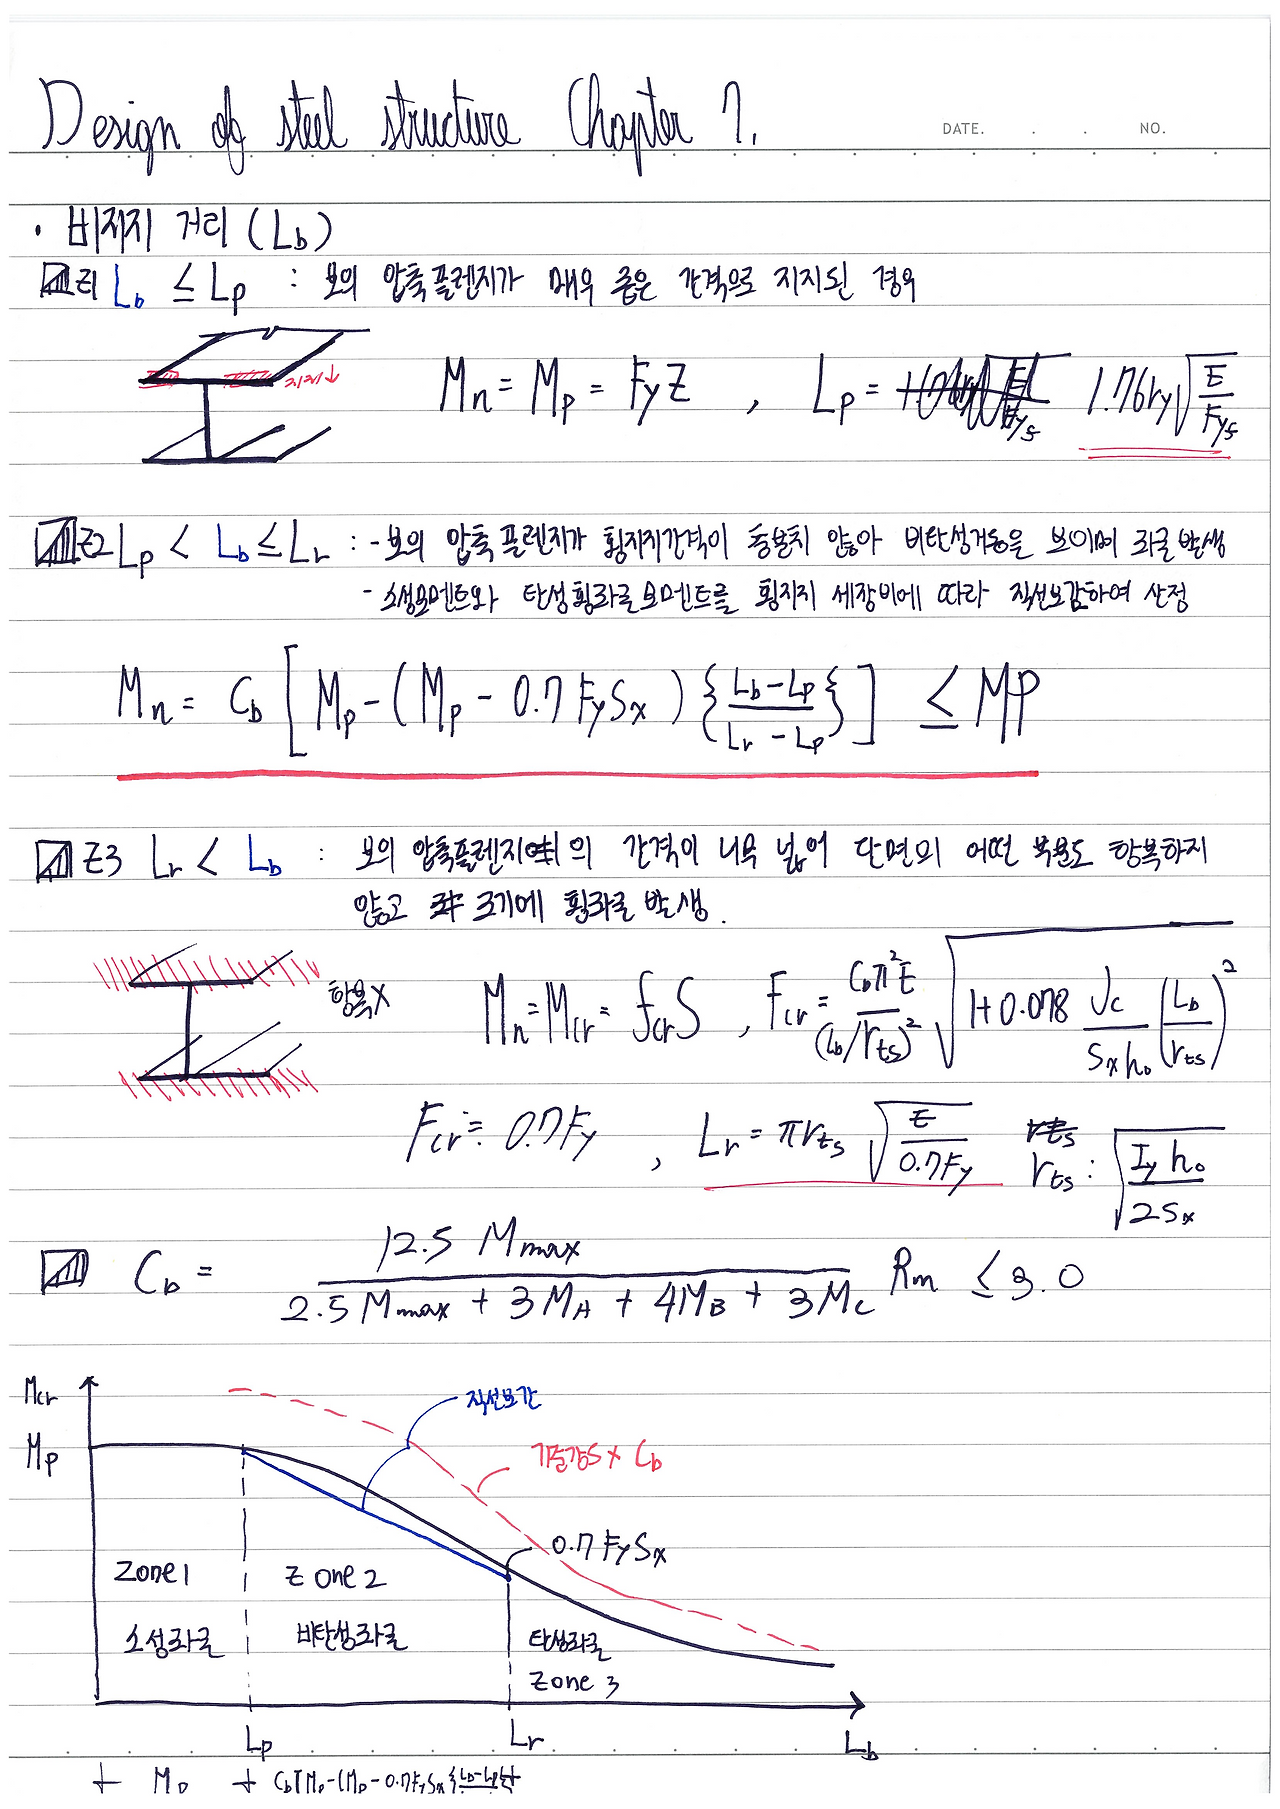 Design of steel structure Chapter 7.
DATE. . . NO.
· 비지지 거리 (Lb)
Z1 Lb ≤ Lp : 보의 압축플렌지가 매우 좁은 간격으로 지지된 경우
지지↓
Mn = Mp = FyZ , Lp = 1.76ry√(E/Fyf)
Z2 Lp < Lb ≤ Lr : - 보의 압축 플렌지가 횡지지간격이 충분치 않아 비탄성거동을 보이며 좌굴발생
- 소성모멘트와 탄성횡좌굴모멘트를 횡지지 세장비에 따라 직선보감하여 산정
Mn = Cb [Mp - (Mp - 0.7FySx) {(Lb-Lp)/(Lr-Lp)}] ≤ Mp
Z3 Lr < Lb : 보의 압축플렌지의 간격이 너무 넓어 단면의 어떤 부분도 항복하지
않고 조기에 횡좌굴 발생.
항복X
Mn = Mcr = fcrS , Fcr = Cbπ²E/(Lb/rts)² √(1+0.078 Jc/(Sxho) (Lb/rts)²)
Fcr = 0.7Fy , Lr = πrts √(E/0.7Fy) rts : √(Iy ho/2Sx)
Cb = 12.5 Mmax / (2.5 Mmax + 3MA + 4MB + 3MC) Rm ≤ 3.0
Mcr
직선보간
Mp
기준강S × Cb
0.7FySx
Zone1 Zone2
소성좌굴 비탄성좌굴 탄성좌굴
Zone 3
Lp Lr Lb
Mp Cb[Mp-(Mp-0.7FySx{Lb-Lp